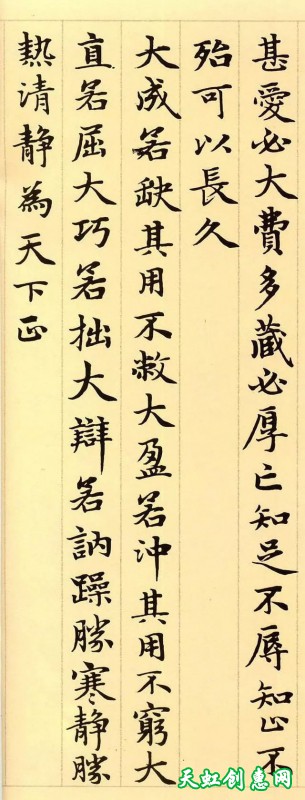 甚愛必大費多藏必厚亡知足不辱知止不
殆可以長久
大成若缺其用不敝大盈若沖其用不窮大
直若屈大巧若拙大辯若訥躁勝寒静勝
熱清静為天下正
天虹创惠网